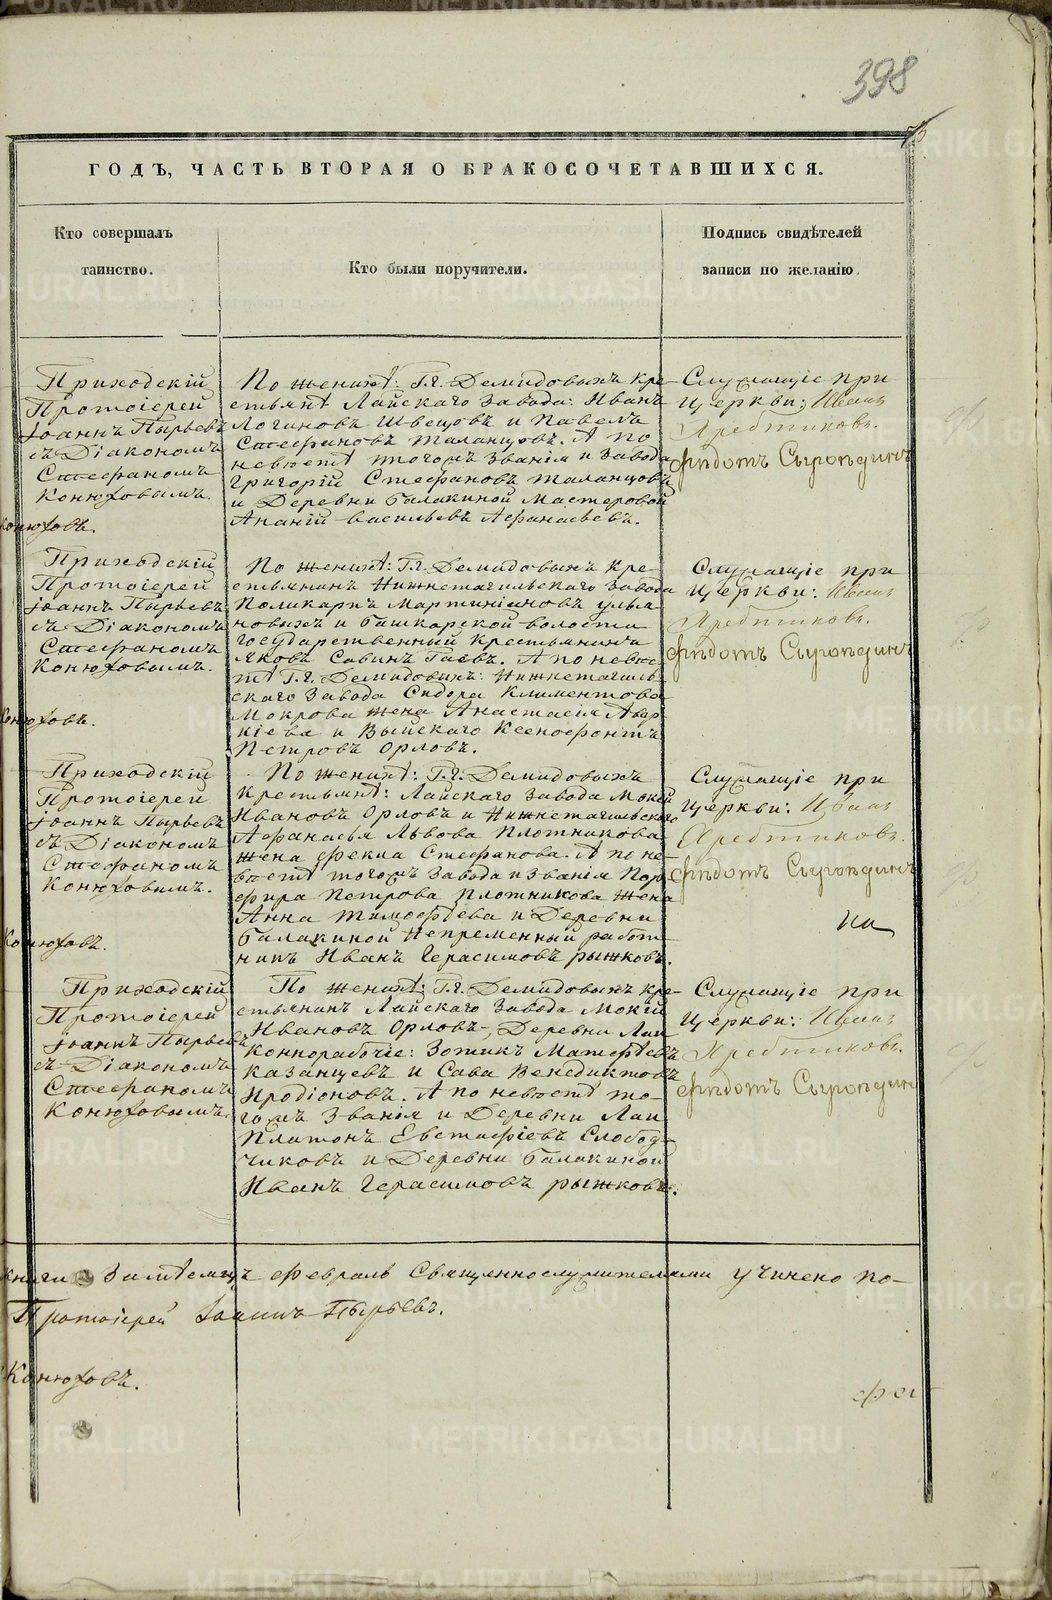 398
ГОДЪ, ЧАСТЬ ВТОРАЯ О БРАКОСОЧЕТАВШИХСЯ.
Кто совершалъ
таинство.
Кто были поручители.
Подпись свидѣтелей
записи по желанію.
Приходскій
Протоіерей
Іоаннъ Пырьевъ
съ Діакономъ
Стефаномъ
Конюховымъ.
Конюховъ.
По женихѣ: Г.г. Демидовыхъ кре-
стьянѣ Лайскаго Завода: Иванъ
Логиновъ Швецовъ и Павелъ
Стефановъ Таланцовъ. А по
невѣстѣ тогожъ Званія и Завода
Григорій Стефановъ Таланцовъ
и Деревни Балакиной Мастеровой
Ананій Васильевъ Афанасьевъ.
Служащіе при
Церкви: Иванъ
Хребтиковъ.
Ѳедотъ Сыропдинъ
Приходскій
Протоіерей
Іоаннъ Пырьевъ
съ Діакономъ
Стефаномъ
Конюховымъ.
Конюховъ.
По женихѣ: Г.г. Демидовыхъ кре-
стьянинъ Нижнетагильскаго Завода
Поликарпъ Мартиніановъ Улья-
новыхъ и Башкарской волости
государственный крестьянинъ
Яковъ Савинъ Гаевъ. А по невѣс-
тѣ Г.г. Демидовыхъ: Нижнетагиль-
скаго Завода Сидора Климентова
Мокрова жена Анастасія Авер-
кіева и Выйскаго Ксенофонтъ
Петровъ Орловъ.
Служащіе при
Церкви: Иванъ
Хребтиковъ.
Приходскій
Протоіерей
Іоаннъ Пырьевъ
съ Діакономъ
Стефаномъ
Конюховымъ.
Конюховъ.
По женихѣ: Г.г. Демидовыхъ
крестьянѣ: Лайскаго Завода Мокей
Ивановъ Орловъ и Нижнетагильскаго
Афанасья Львова Плотникова
жена Фекла Стефанова. А по не-
вѣстѣ тогожъ Завода и Званія Пор-
фира Петрова Плотникова жена
Анна Тимофѣева и Деревни
Балакиной Непременный работ-
никъ Иванъ Герасимовъ Рыжковъ.
Служащіе при
Церкви: Иванъ
Хребтиковъ.
на
Приходскій
Протоіерей
Іоаннъ Пырьевъ
съ Діакономъ
Стефаномъ
Конюховымъ.
По женихѣ: Г.г. Демидовыхъ кре-
стьянинъ Лайскаго Завода Мокій
Ивановъ Орловъ, Деревни Лаи
Коннорабочіе: Зотикъ Матфѣевъ
Казанцевъ и Сава Венедиктовъ
Иродіоновъ. А по невѣстѣ то-
гожъ Званія и Деревни Лаи
Платонъ Евстафіевъ Слобод-
чиковъ и Деревни Балакиной
Иванъ Герасимовъ Рыжковъ.
Служащіе при
Церкви: Иванъ
Хребтиковъ.
книги за мѣсяцъ февраль Священнослужителями учинено по-
Протоіерей Іоаннъ Пырьевъ.
Конюховъ.